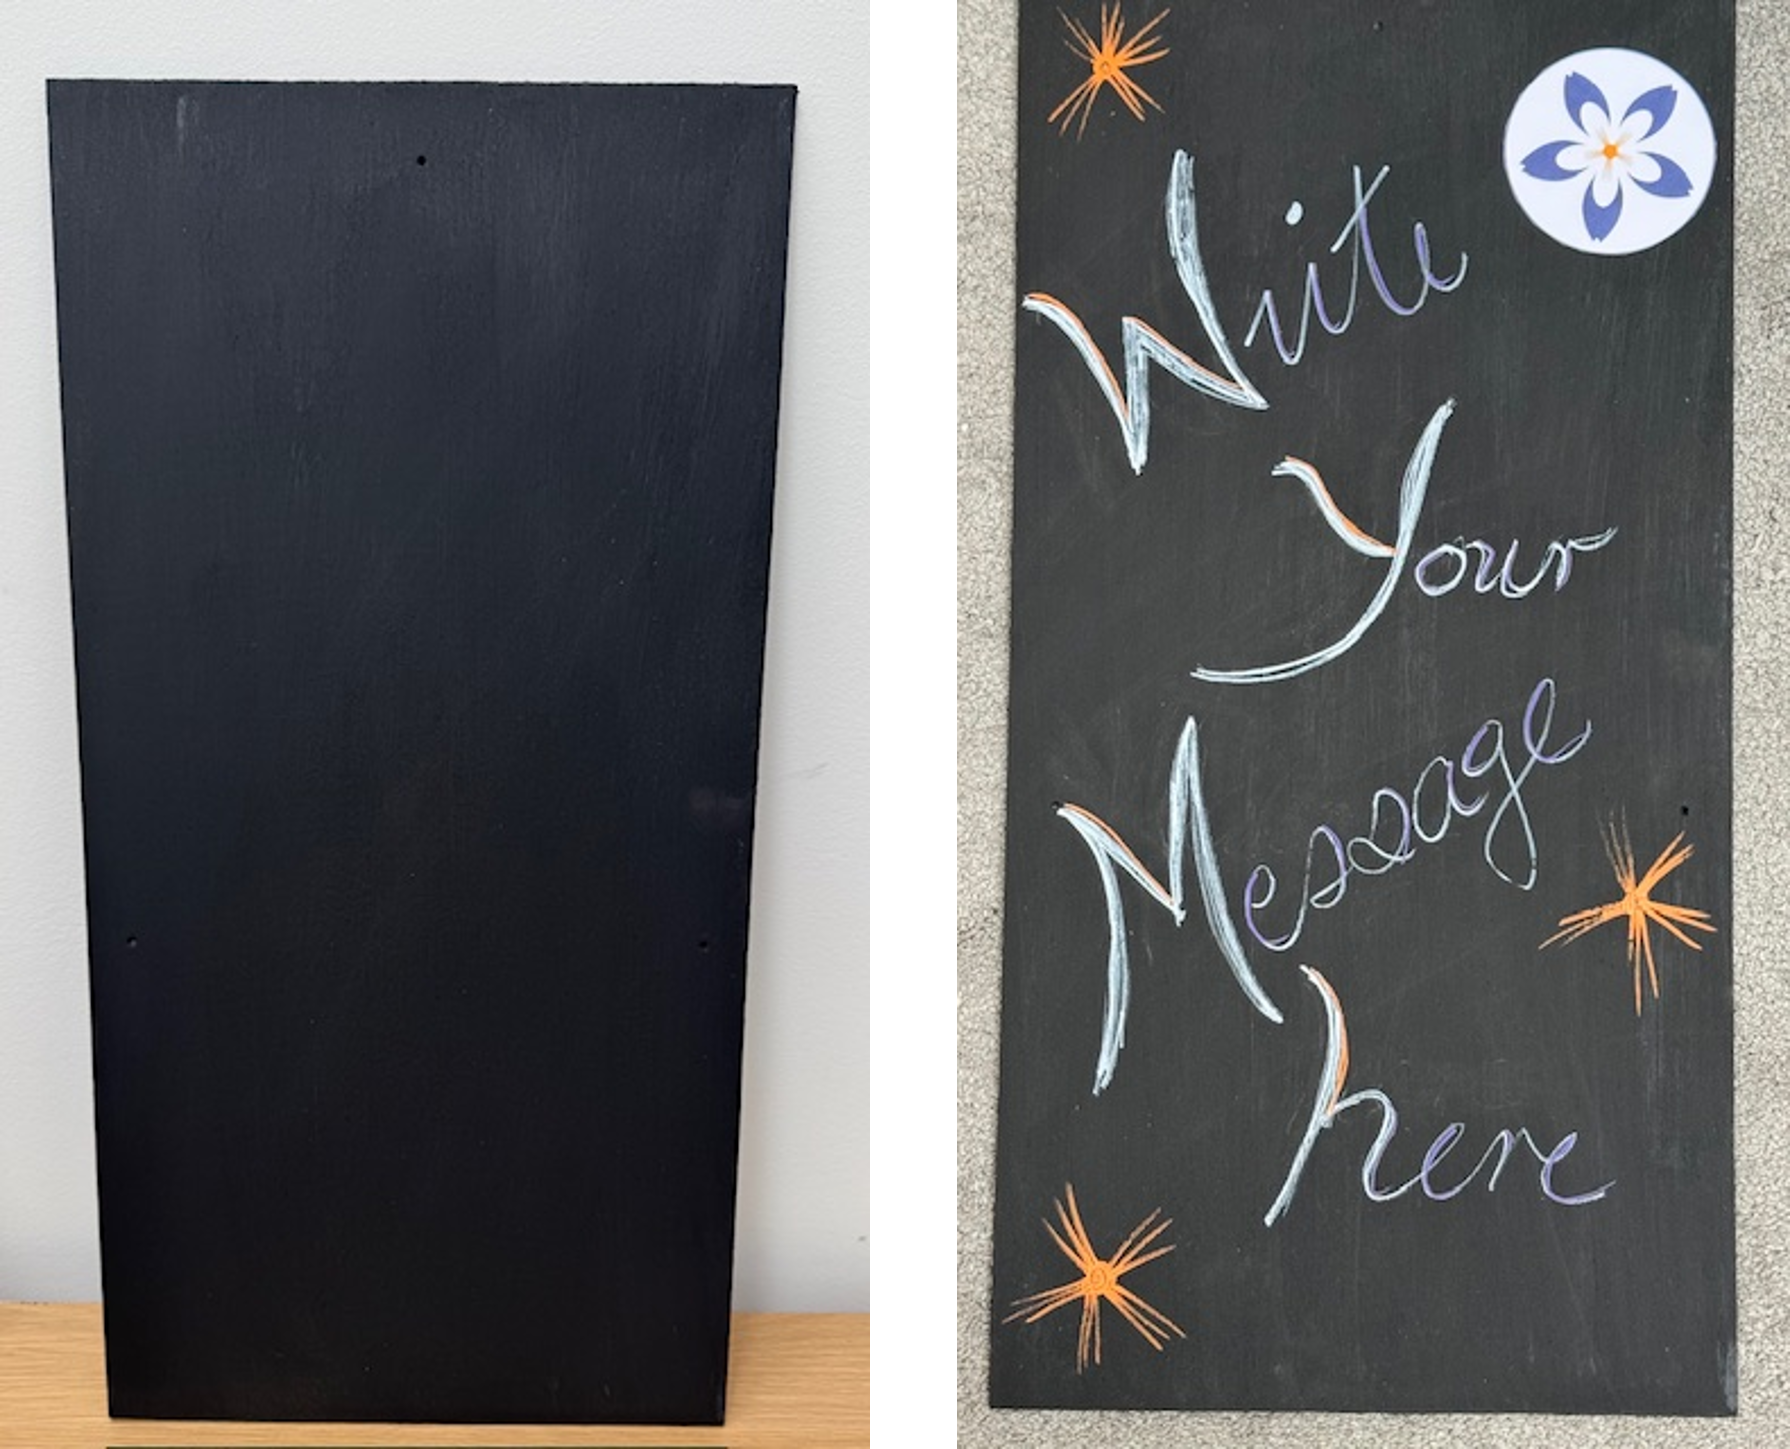 Write
Your
Message
here